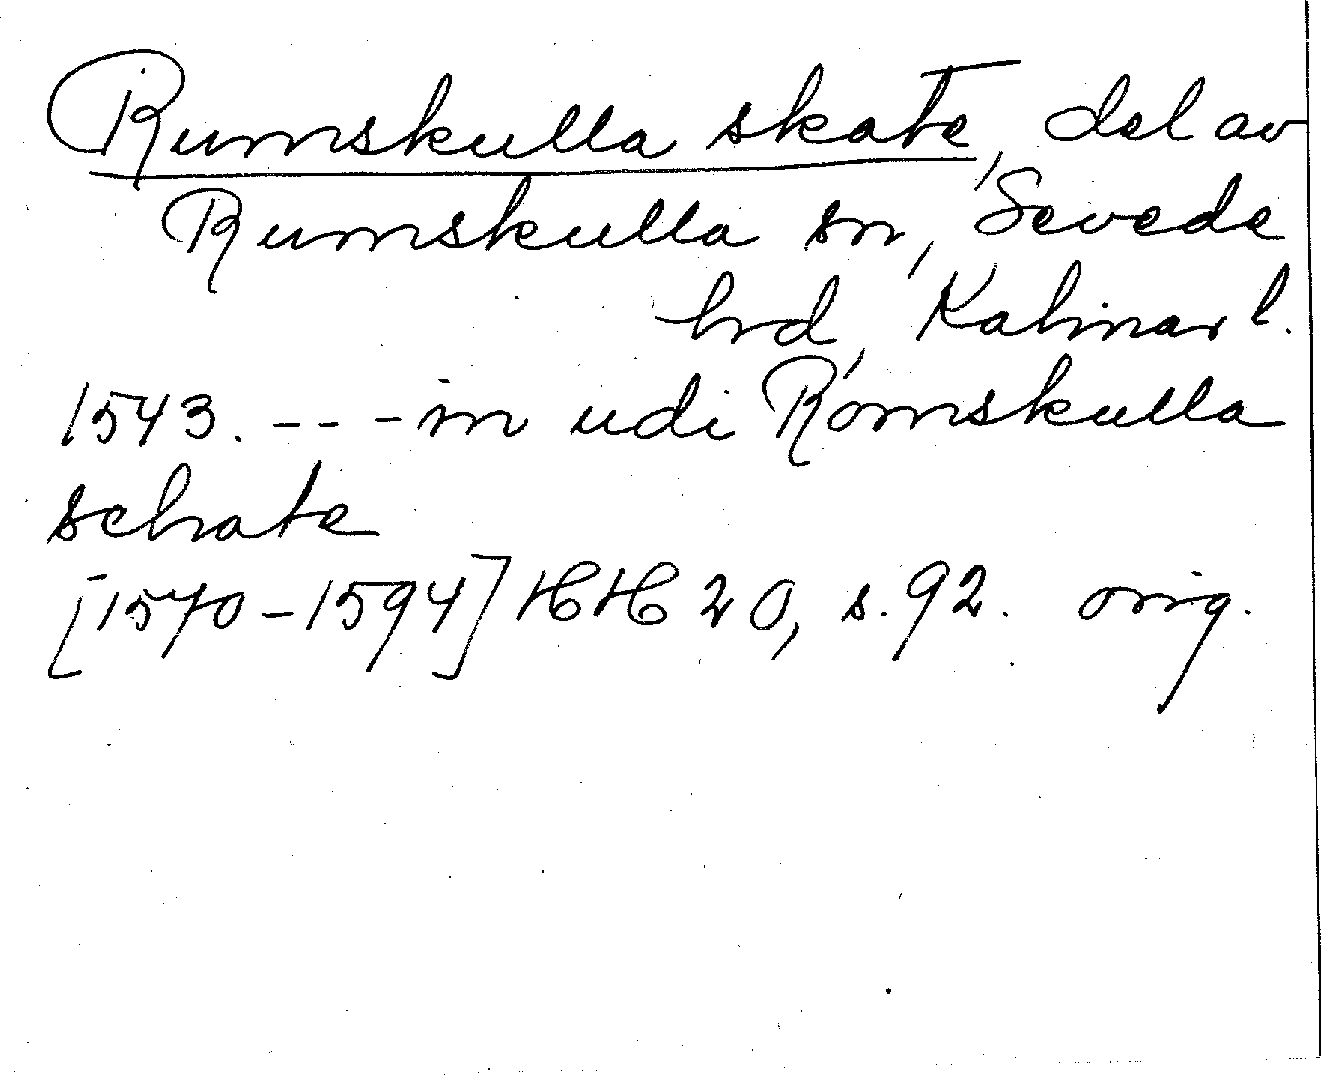 Rumskulla skate, del av
Rumskulla sn, Sevede
hrd, Kalmar l.
1543. --- in udi Romskulla
schate
[1570-1594] HH 20, s. 92. orig.